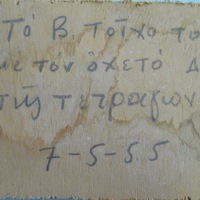 Τό Β. τοῖχο το
με τόν ὀχετό Δ
τῆς τετραγων
7-5-55